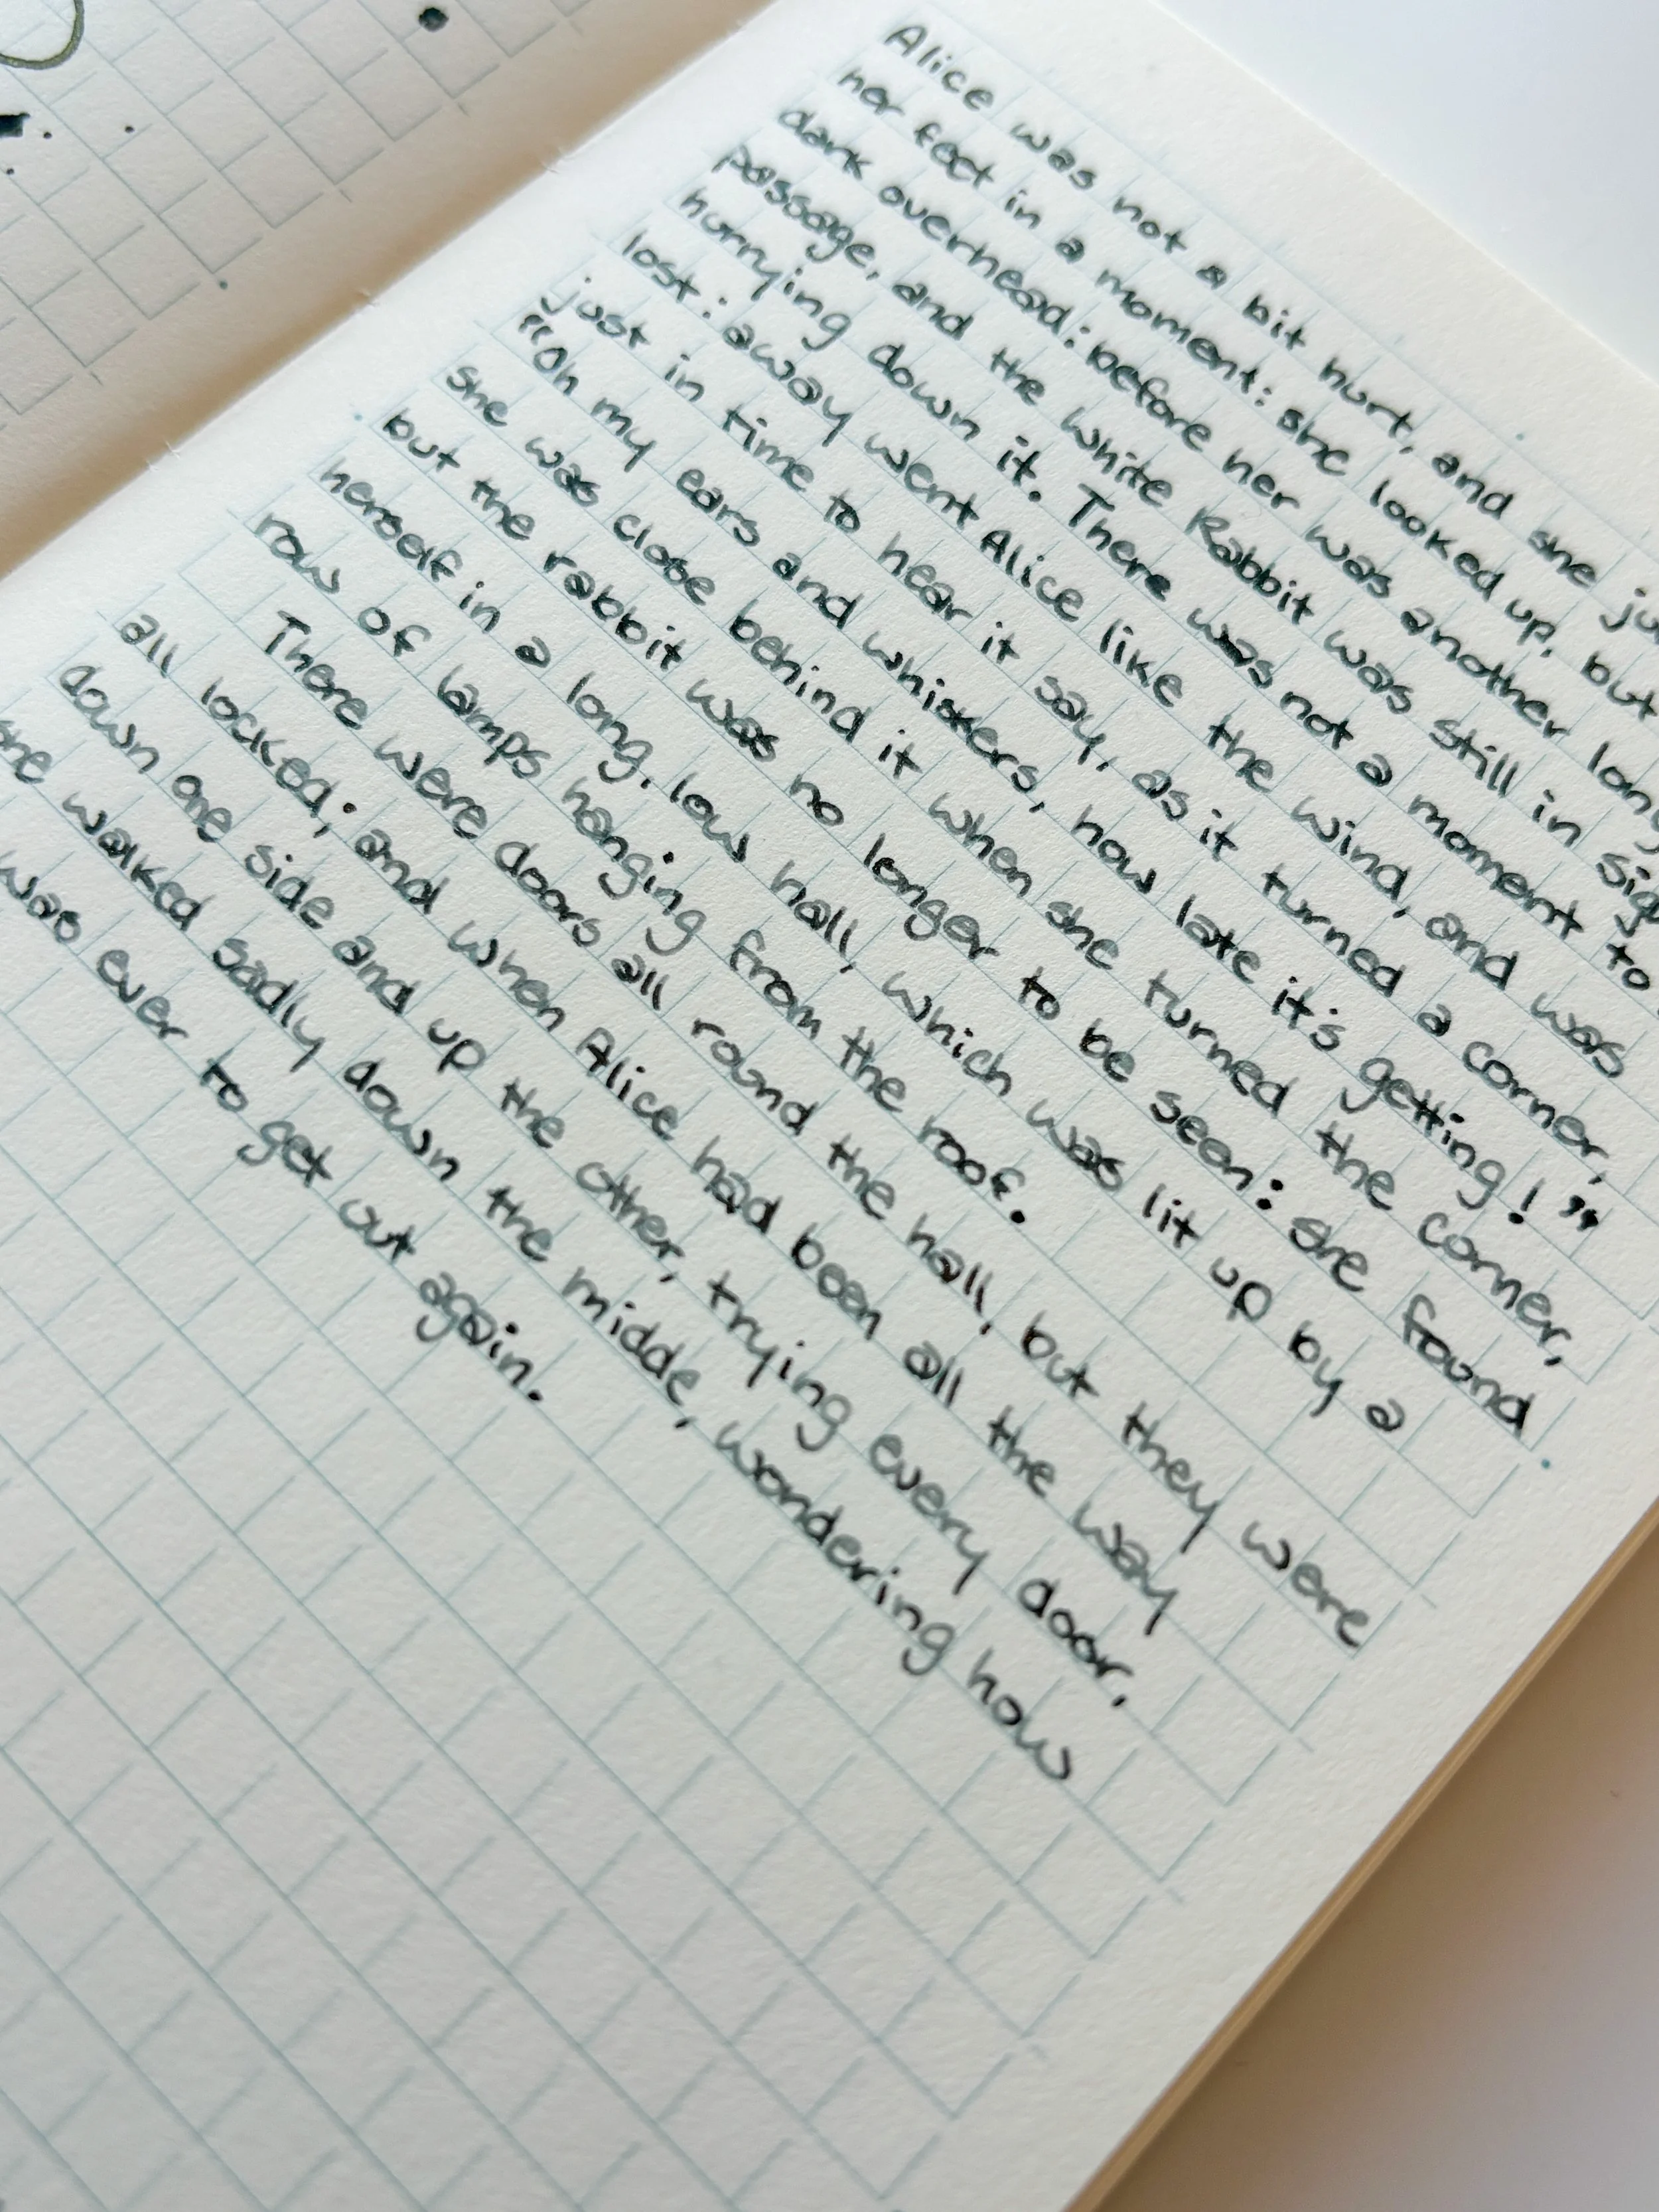 Alice was not a bit hurt, and she ju
her feet in a moment: she looked up, but
dark overhead: before her was another long
passage, and the White Rabbit was still in sig
hurrying down it. There was not a moment to
lost: away went Alice like the wind, and was
just in time to hear it say, as it turned a corner,
"Oh my ears and whiskers, how late it's getting!"
She was close behind it when she turned the corner,
but the rabbit was no longer to be seen: she found
herself in a long, low hall, which was lit up by a
row of lamps hanging from the roof.
There were doors all round the hall, but they were
all locked; and when Alice had been all the way
down one side and up the other, trying every door,
she walked sadly down the midde, wondering how
was ever to get out again.